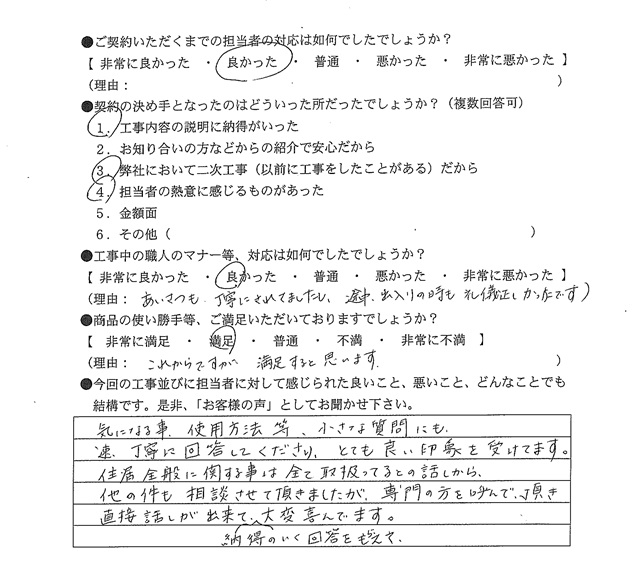 ●ご契約いただくまでの担当者の対応は如何でしたでしょうか？
【 非常に良かった ・ 良かった ・ 普通 ・ 悪かった ・ 非常に悪かった 】
（理由：　　　）
●契約の決め手となったのはどういった所だったでしょうか？（複数回答可）
１．工事内容の説明に納得がいった
２．お知り合いの方などからの紹介で安心だから
３．弊社において二次工事（以前に工事をしたことがある）だから
４．担当者の熱意に感じるものがあった
５．金額面
６．その他（　　　）
●工事中の職人のマナー等、対応は如何でしたでしょうか？
【 非常に良かった ・ 良かった ・ 普通 ・ 悪かった ・ 非常に悪かった 】
（理由： あいさつも 丁寧にされてましたし、途中、出入りの時も 礼儀正しかったです）
●商品の使い勝手等、ご満足いただいておりますでしょうか？
【 非常に満足 ・ 満足 ・ 普通 ・ 不満 ・ 非常に不満 】
（理由： これからですが 満足すると思います。　）
●今回の工事並びに担当者に対して感じられた良いこと、悪いこと、どんなことでも
結構です。是非、「お客様の声」としてお聞かせ下さい。
気になる事、使用方法 等、小さな質問にも、
速、丁寧に回答してくださり、とても良い印象を受けてます。
住居全般に関する事は全て取扱ってるとの話しから、
他の件も 相談させて頂きましたが、専門の方を呼んで頂き
直接話しが出来て、大変喜んでます。
納得のいく回答をもらえて、